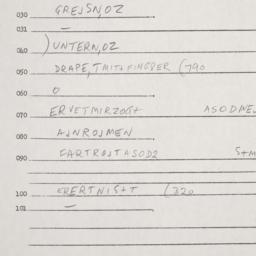 030 GREJSN,OZ
031 —
040 )UNTERN,OZ
050 DRAPE,TMITZFINGDER (790
060 O
070 ERVETMIRZOGT ASODME
080 AJNROJMEN
090 CARTROJTASODZ S+M
100 ERERTNIS+T (220
101 —